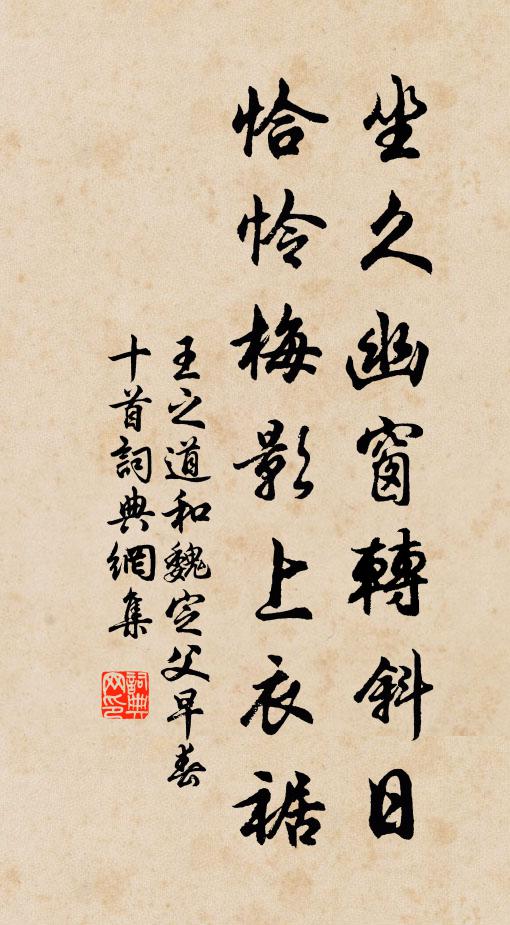 坐久幽窗轉斜日
恰憐梅影上衣裾
王之道和魏定父早春
十首詞典網集
詞典
网印